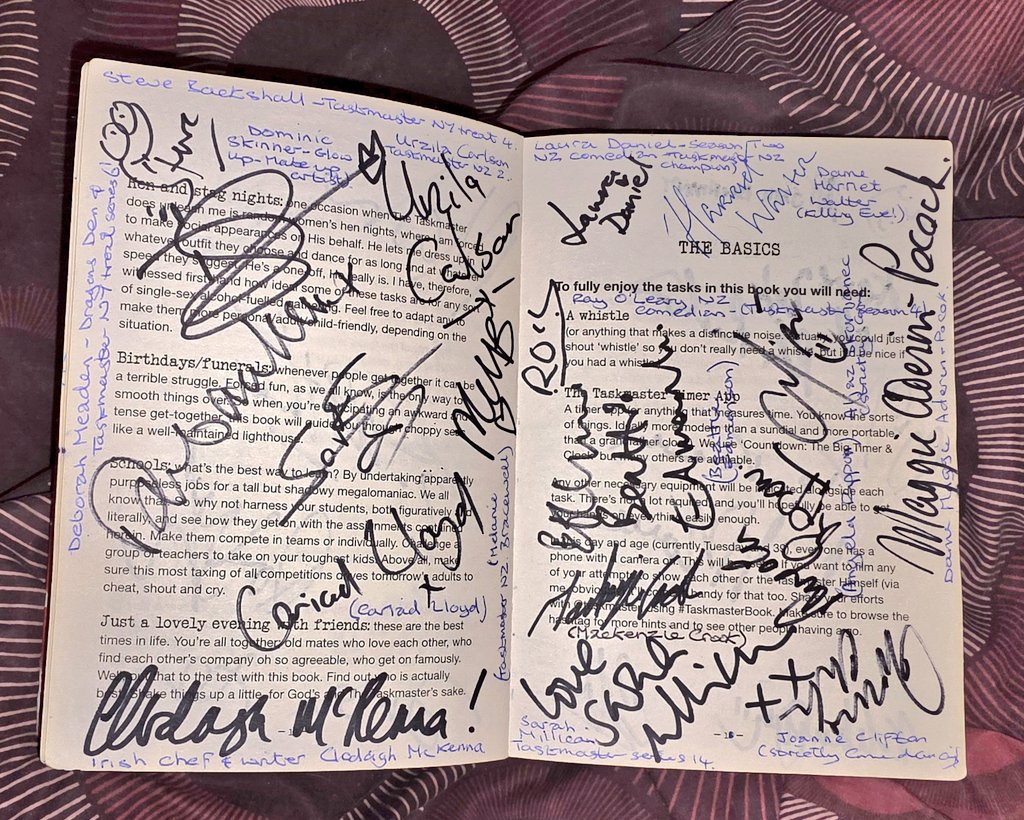 Steve Backshall - Taskmaster NY treat 4.
Dominic
Skinner - Glow
Up - Make
artist)
Urzila Carlson
Taskmaster NZ 2.
Steve
Urzila
Carlson
Deborah Meaden - Dragons Den &
Taskmaster - NY treat series 5!
Hen and stag nights: one occasion when the Taskmaster
does unleash me is rendering women's hen nights, where I am forced
to make social appearances on His behalf. He lets me dress up in
whatever outfit they choose and dance for as long and at whatever
speed they suggest. He's a one-off, He really is. I have, therefore,
witnessed firsthand how ideal some of these tasks are for any sort
of single-sex alcohol-fuelled gathering. Feel free to adapt any to
make them more personal/adult/child-friendly, depending on the
situation.
Birthdays/funerals: whenever people get together it can be
a terrible struggle. Forced fun, as we all know, is the only way to
smooth things over so when you're anticipating an awkward or
tense get-together, this book will guide you through choppy seas
like a well-maintained lighthouse.
Schools: what's the best way to learn? By undertaking apparently
purposeless jobs for a tall but shadowy megalomaniac. We all
know that. So why not harness your students, both figuratively and
literally and see how they get on with the assignments contained
herein. Make them compete in teams or individually. Challenge a
group of teachers to take on your toughest kids. Above all, make
sure this most taxing of all competitions gives tomorrow's adults to
cheat, shout and cry.
Cariad Lloyd
x
(Cariad Lloyd)
(Taskmaster NZ 2 Melanie Bracewell)
Just a lovely evening with friends: these are the best
times in life. You're all together, old mates who love each other, who
find each other's company oh so agreeable, who get on famously.
Well, put that to the test with this book. Find out who is actually
best. Shake things up a little, for God's and the Taskmaster's sake.
Clodagh McKenna!
Irish chef & writer Clodagh McKenna
Laura Daniel - Season Two
NZ comedian - Taskmaster NZ
Champion)
Laura
Daniel
Harriet
Walter
Dame
Harriet
Walter
(Killing Eve!)
THE BASICS
To fully enjoy the tasks in this book you will need:
Ray O'Leary NZ
comedian - (Taskmaster Season 4)
ROL
A whistle
(or anything that makes a distinctive noise. Actually you could just
shout 'whistle' so you don't really need a whistle, but it'd be nice if
you had a whistle)
The Taskmaster Timer App
A timer or anything that measures time. You know the sorts
of things. Ideally more modern than a sundial and more portable
than a grandfather clock. We use 'Countdown: The Big Timer &
Clock' but many others are available.
Any other necessary equipment will be listed alongside each
task. There's not a lot required and you'll hopefully be able to get
your hands on everything easily enough.
In this day and age (currently Tuesday and 39), everyone has a
phone with a camera on. This will be useful if you want to film any
of your attempts to show each other or the Taskmaster Himself (via
me obviously). handy for that too. Share your efforts
with Taskmaster using #TaskmasterBook. Make sure to browse the
hashtag for more hints and to see other people having a go.
Maggie Aderin-Pocock.
Dame Maggie Aderin-Pocock
(Mackenzie Crook)
Love
Sarah
Millican
x x
Sarah
Millican
Taskmaster series 14.
Joanne Clifton
(Strictly Come Dancing)